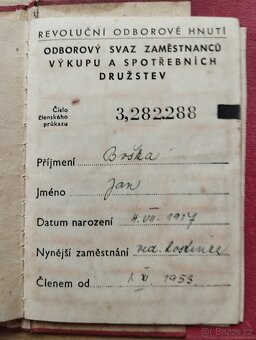 REVOLUČNÍ ODBOROVÉ HNUTÍ
ODBOROVÝ SVAZ ZAMĚSTNANCŮ
VÝKUPU A SPOTŘEBNÍCH
DRUŽSTEV
Číslo
členského
průkazu
3,282.288
Příjmení Brška
Jméno Jan
Datum narození 4. VII. 1917
Nynější zaměstnání ved. hostince
Členem od 1. XI. 1953
sbazar.cz